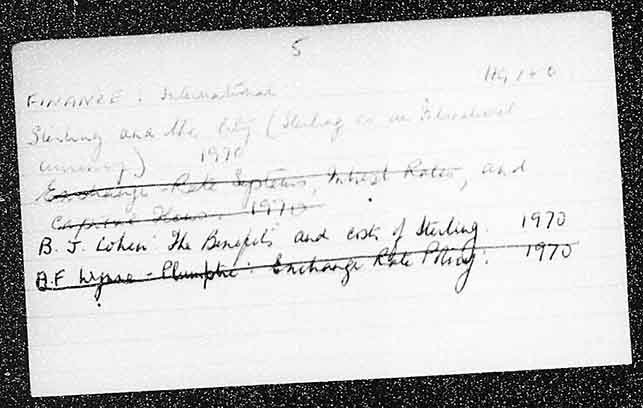 5
FINANCE : International HG 140
Sterling and the City (Sterling as an International
currency) 1970
Exchange Rate Systems, Interest Rates, and
Capital Flows. 1970
B. J. Cohen: The Benefits and costs of Sterling. 1970
A.F. Wynne - Plumptre: Exchange Rate Policy. 1970